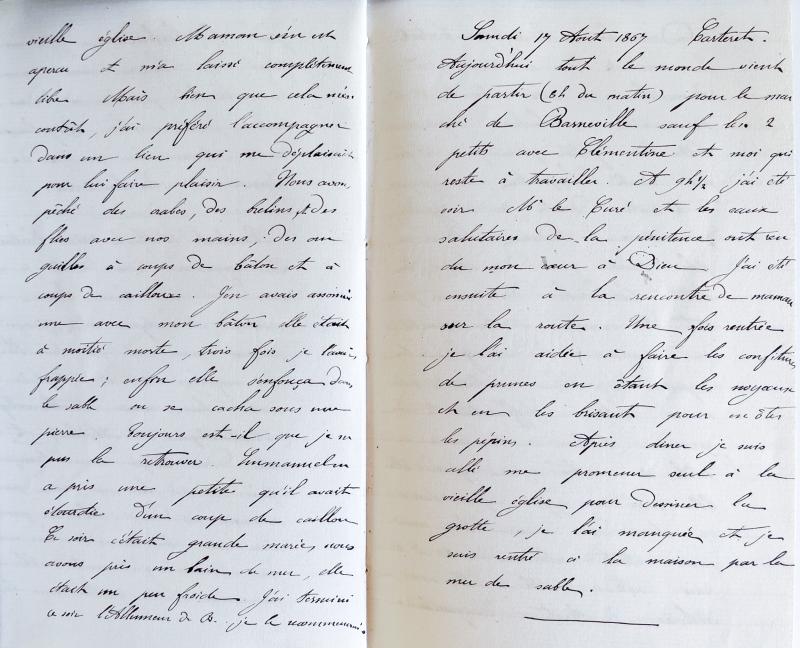 vieille église. Maman s'en est
aperçu et m'a laissé complètement
libre Mais bien que cela m'eu
contrit, j'ai préféré l'accompagner
dans un lieu qui me déplaisait
pour lui faire plaisir. Nous avons
pêché des crabes, des brelins, et des
flies avec nos mains, des an
guilles à coups de bâton et à
coups de cailloux. J'en avais assommé
une avec mon bâton elle était
à moitié morte, trois fois je l'avais
frappée ; enfin elle s'enfonça dans
le sable ou se cacha sous une
pierre. Toujours est-il que je ne
pus la retrouver. Emmanuel en
a pris une petite qu'il avait
étourdie d'un coup de caillou
Ce soir c'était grande marée, nous
avons pris un bain de mer, elle
était un peu froide J'ai terminé
ce soir l'Allumeur de R.. je le recommence.
Samdi 17 Aout 1867 Carteret.
Aujourd'hui tout le monde vient
de partir (8h du matin) pour le mar
ché de Barneville sauf les 2
petits avec Clémentine et moi qui
reste à travailler. A 9h½ j'ai été
voir Mr le Curé et les eaux
salutaires de la pénitence ont ren
du mon cœur à Dieu J'ai été
ensuite à la rencontre de maman
sur la route. Une fois rentrée
je l'ai aidée à faire les confitures
de prunes en ôtant les noyaux
et en les brisant pour en ôter
les pépins. Après diner je suis
allé me promener seul à la
vieille église pour dessiner la
grotte, je l'ai manquée et je
suis rentré à la maison par la
mer de sable.